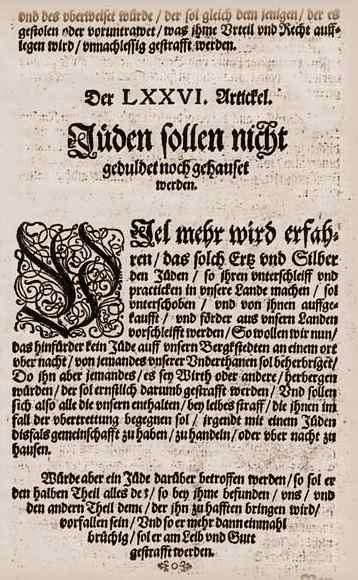 vnd des vberweiset würde / der sol gleich dem jenigen / der es
gestolen oder voruntrawet / was ihme Vrteil vnd Recht auff-
legen wird / vnnachlessig gestrafft werden.
Der LXXVI. Artickel.
Jüden sollen nicht
geduldet noch gehauset
werden.
WJel mehr wird erfah-
ren / das solch Ertz vnd Silber
den Jüden / so ihren vnterschleiff vnd
practicken in vnsere Lande machen / sol
vnterschoben / vnd von ihnen auffge-
kaufft / vnd förder aus vnsern Landen
vorschleifft werden / So wollen wir nun /
das hinfürder kein Jüde auff vnsern Bergkstedten an einem ort
vber nacht / von jemandes vnserer Vnderthanen sol beherbriget /
Do ihn aber jemandes / es sey Wirth oder andere / herbergen
würden / der sol ernstlich darumb gestrafft werden / Vnd sollen
sich also alle die vnsern enthalten / bey leibes straff / die ihnen im
fall der vbertrettung begegnen sol / irgendt mit einem Jüden
disfals gemeinschafft zu haben / zu handeln / oder vber nacht zu
hausen.
Würde aber ein Jüde darüber betroffen werden / so sol er
den halben Theil alles des / so bey ihme befunden / vns / vnd
den andern Theil deme / der ihn zu hafften bringen wird /
vorfallen sein / Vnd so er mehr dann einmahl
brüchig / sol er am Leib vnd Gutt
gestrafft werden.